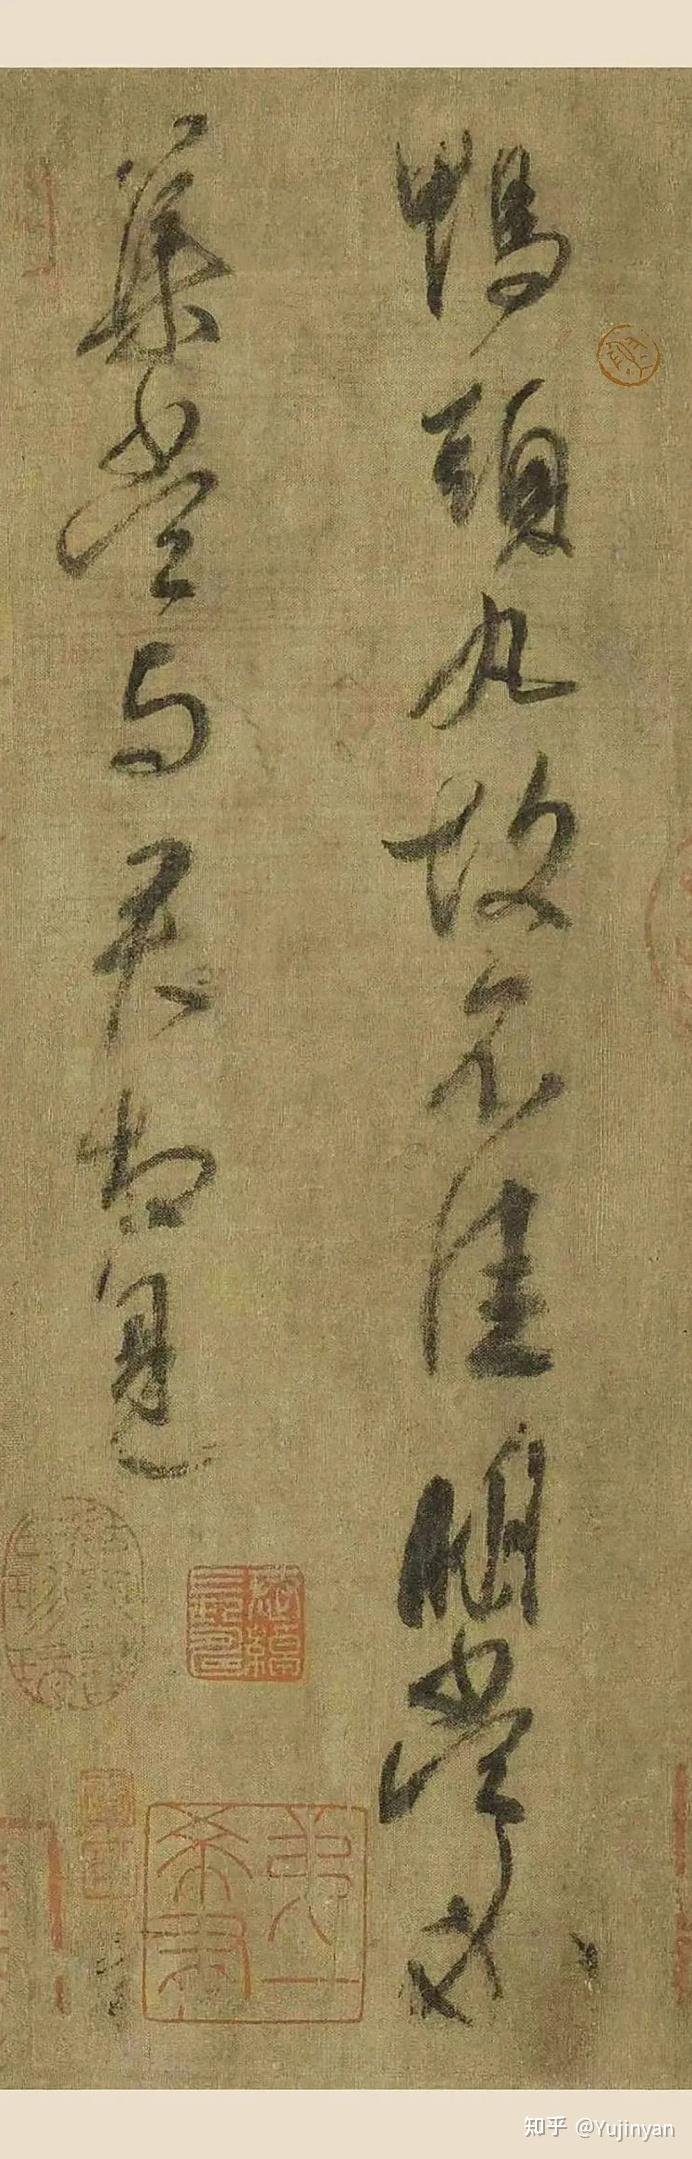 鴨頭丸故不佳明當必
集當與君相見
知乎 @Yujinyan